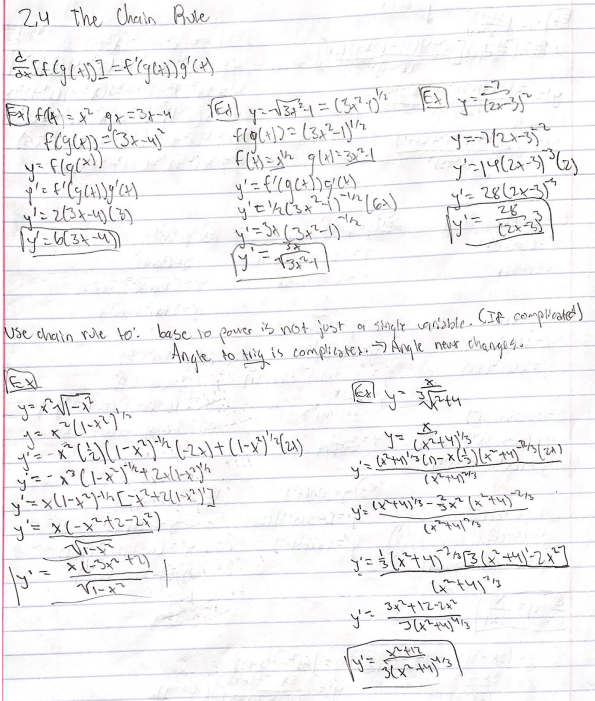 2.4 The Chain Rule
d/dx [f(g(x))] = f'(g(x))g'(x)
Ex f(x) = x² gx = 3x-4
f(g(x)) = (3x-4)²
y = f(g(x))
y' = f'(g(x))g'(x)
y' = 2(3x-4)(3)
y' = 6(3x-4)
Ex y = √3x²-1 = (3x²-1)^1/2
f(g(x)) = (3x²-1)^1/2
f(x) = x^1/2 g(x) = 3x²-1
y' = f'(g(x))g'(x)
y' = 1/2(3x²-1)^-1/2 (6x)
y' = 3x(3x²-1)^-1/2
y' = 3x/√3x²-1
Ex y = -7/(2x-3)²
y = -7(2x-3)^-2
y' = 14(2x-3)^-3(2)
y' = 28(2x-3)^-3
y' = 28/(2x-3)³
Use chain rule to: base to power is not just a single variable. (If complicated)
Angle to trig is complicates. → Angle never changes.
Ex
y = x²√1-x²
y = x²(1-x²)^1/2
y' = -x²(1/2)(1-x²)^-1/2 (-2x) + (1-x²)^1/2(2x)
y' = -x³(1-x²)^-1/2 + 2x(1-x²)^1/2
y' = x(1-x²)^-1/2 [-x²+2(1-x²)']
y' = x(-x²+2-2x²)/√1-x²
y' = x(-3x²+2)/√1-x²
Ex y = x/∛x²+4
y = x/(x²+4)^1/3
y' = (x²+4)^1/3(1)-x(1/3)(x²+4)^-2/3(2x)/(x²+4)^2/3
y' = (x²+4)^1/3 - 2/3x²(x²+4)^-2/3/(x²+4)^2/3
y' = 1/3(x²+4)^-2/3[3(x²+4)'-2x²]/(x²+4)^2/3
y' = 3x²+12-2x²/3(x²+4)^4/3
y' = x²+12/3(x²+4)^4/3